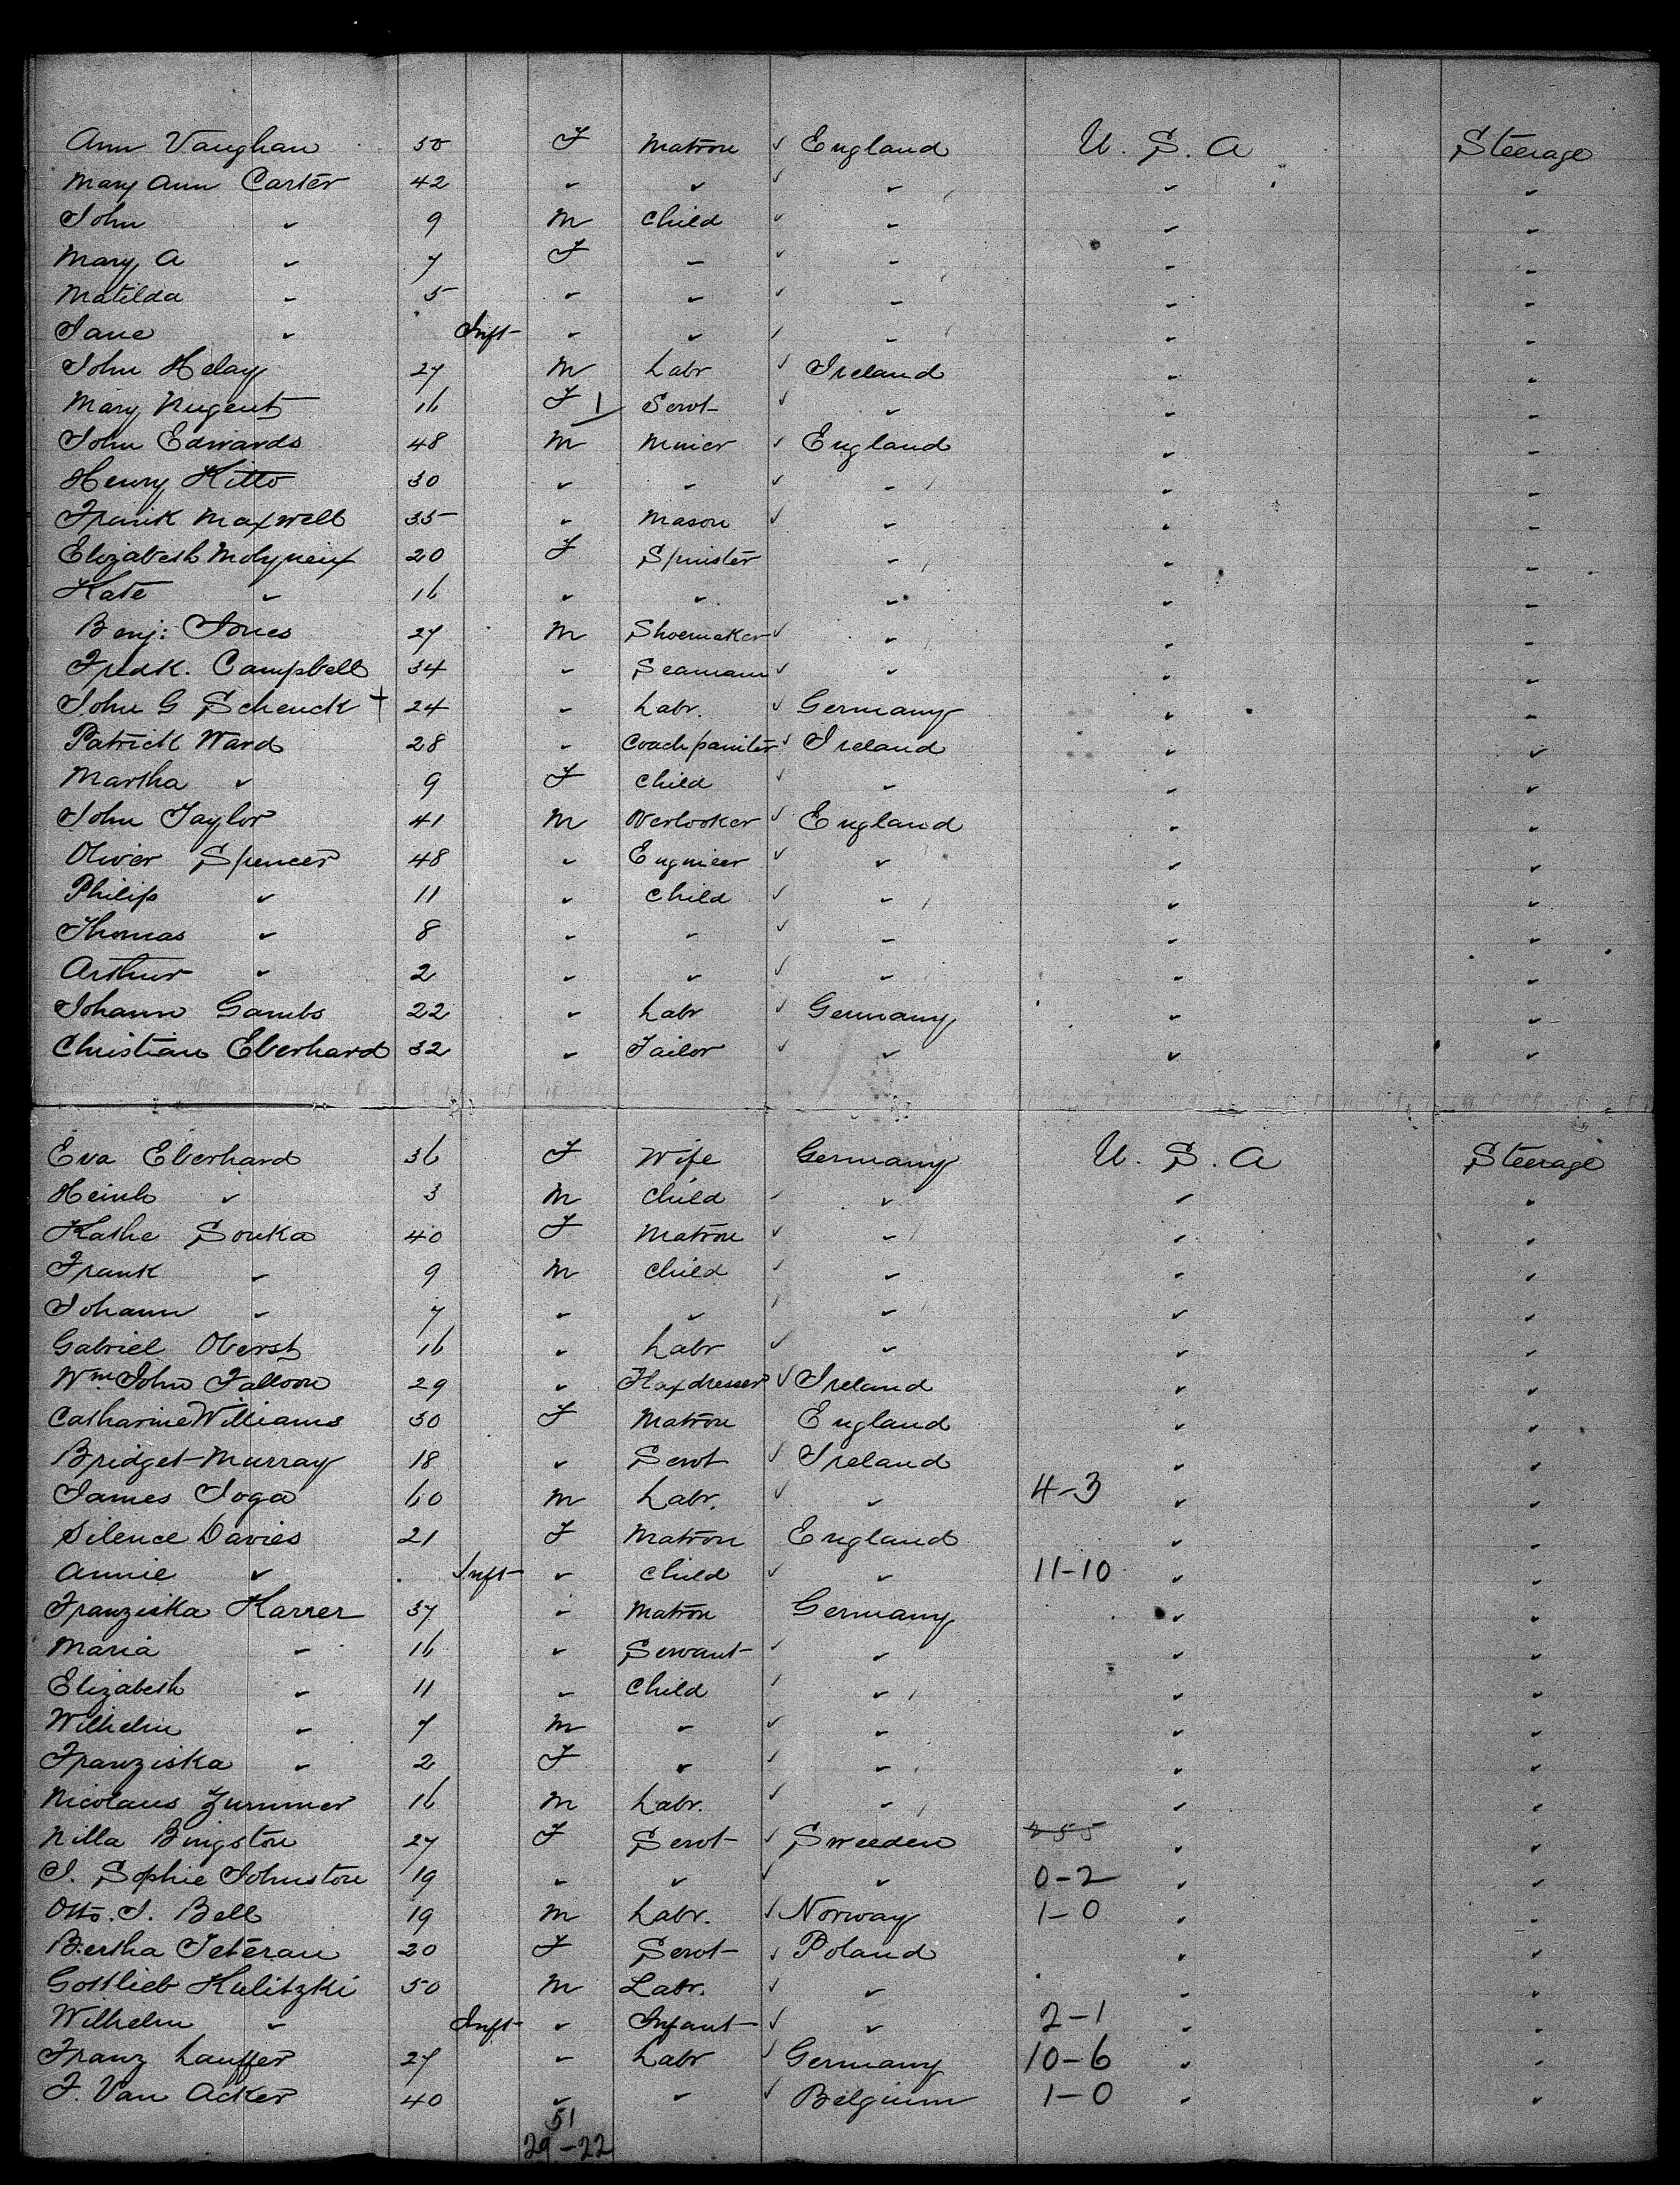 Ann Vaughan 50 F Matron ✓ England U. S. A Steerage
Mary Ann Carter 42 " " ✓ " " "
John " 9 M Child ✓ " " "
Mary A " 7 F " ✓ " " "
Matilda " 5 " " ✓ " " "
Jane " Inft " " ✓ " " "
John Helay 27 M Labr ✓ Ireland " "
Mary Nugent 16 F 1 Servt ✓ " " "
John Edwards 48 M Miner ✓ England " "
Henry Kitto 30 " " ✓ " " "
Frank Maxwell 35 " Mason ✓ " " "
Elizabeth Molyneux 20 F Spinster " " "
Kate " 16 " " " " "
Benj: Jones 27 M Shoemaker ✓ " " "
Fredk. Campbell 34 " Seaman ✓ " " "
John G Schenck + 24 " Labr. ✓ Germany " "
Patrick Ward 28 " Coachpainter ✓ Ireland " "
Martha " 9 F Child ✓ " " "
John Taylor 41 M Overlooker ✓ England " "
Oliver Spencer 48 " Engineer ✓ " " "
Philip " 11 " Child ✓ " " "
Thomas " 8 " " ✓ " " "
Arthur " 2 " " ✓ " " "
Johann Gambs 22 " Labr ✓ Germany " "
Christian Eberhard 32 " Tailor ✓ " " "
Eva Eberhard 36 F Wife Germany U. S. A Steerage
Heinh " 3 M Child ✓ " " "
Kathe Souka 40 F Matron ✓ " " "
Frank " 9 M Child ✓ " " "
Johann " 7 " " ✓ " " "
Gabriel Oberst 16 " Labr ✓ " " "
Wm John Falloon 29 " Flaxdresser ✓ Ireland " "
Catharine Williams 30 F Matron England " "
Bridget Murray 18 " Servt ✓ Ireland " "
James Joga 60 M Labr. ✓ " 4-3 " "
Silence Davies 21 F Matron England " "
Annie " Inft " Child ✓ " 11-10 " "
Franziska Karrer 37 " Matron Germany " "
Maria " 16 " Servant ✓ " " "
Elizabeth " 11 " Child ✓ " " "
Wilhelm " 7 M " ✓ " " "
Franziska " 2 F " ✓ " " "
Nicolaus Zummer 16 M Labr. ✓ " " "
Nilla Bingston 27 F Servt ✓ Sweeden " "
J. Sophie Johnston 19 " " ✓ " 0-2 " "
Otto. J. Bell 19 M Labr. ✓ Norway 1-0 " "
Bertha Teteran 20 F Servt ✓ Poland " "
Gottlieb Kulitzki 50 M Labr. ✓ " " "
Wilhelm " Inft " Infant ✓ " 2-1 " "
Franz Lauffer 27 " Labr ✓ Germany 10-6 " "
F. Van Acker 40 " " ✓ Belgium 1-0 " "
51
29-22